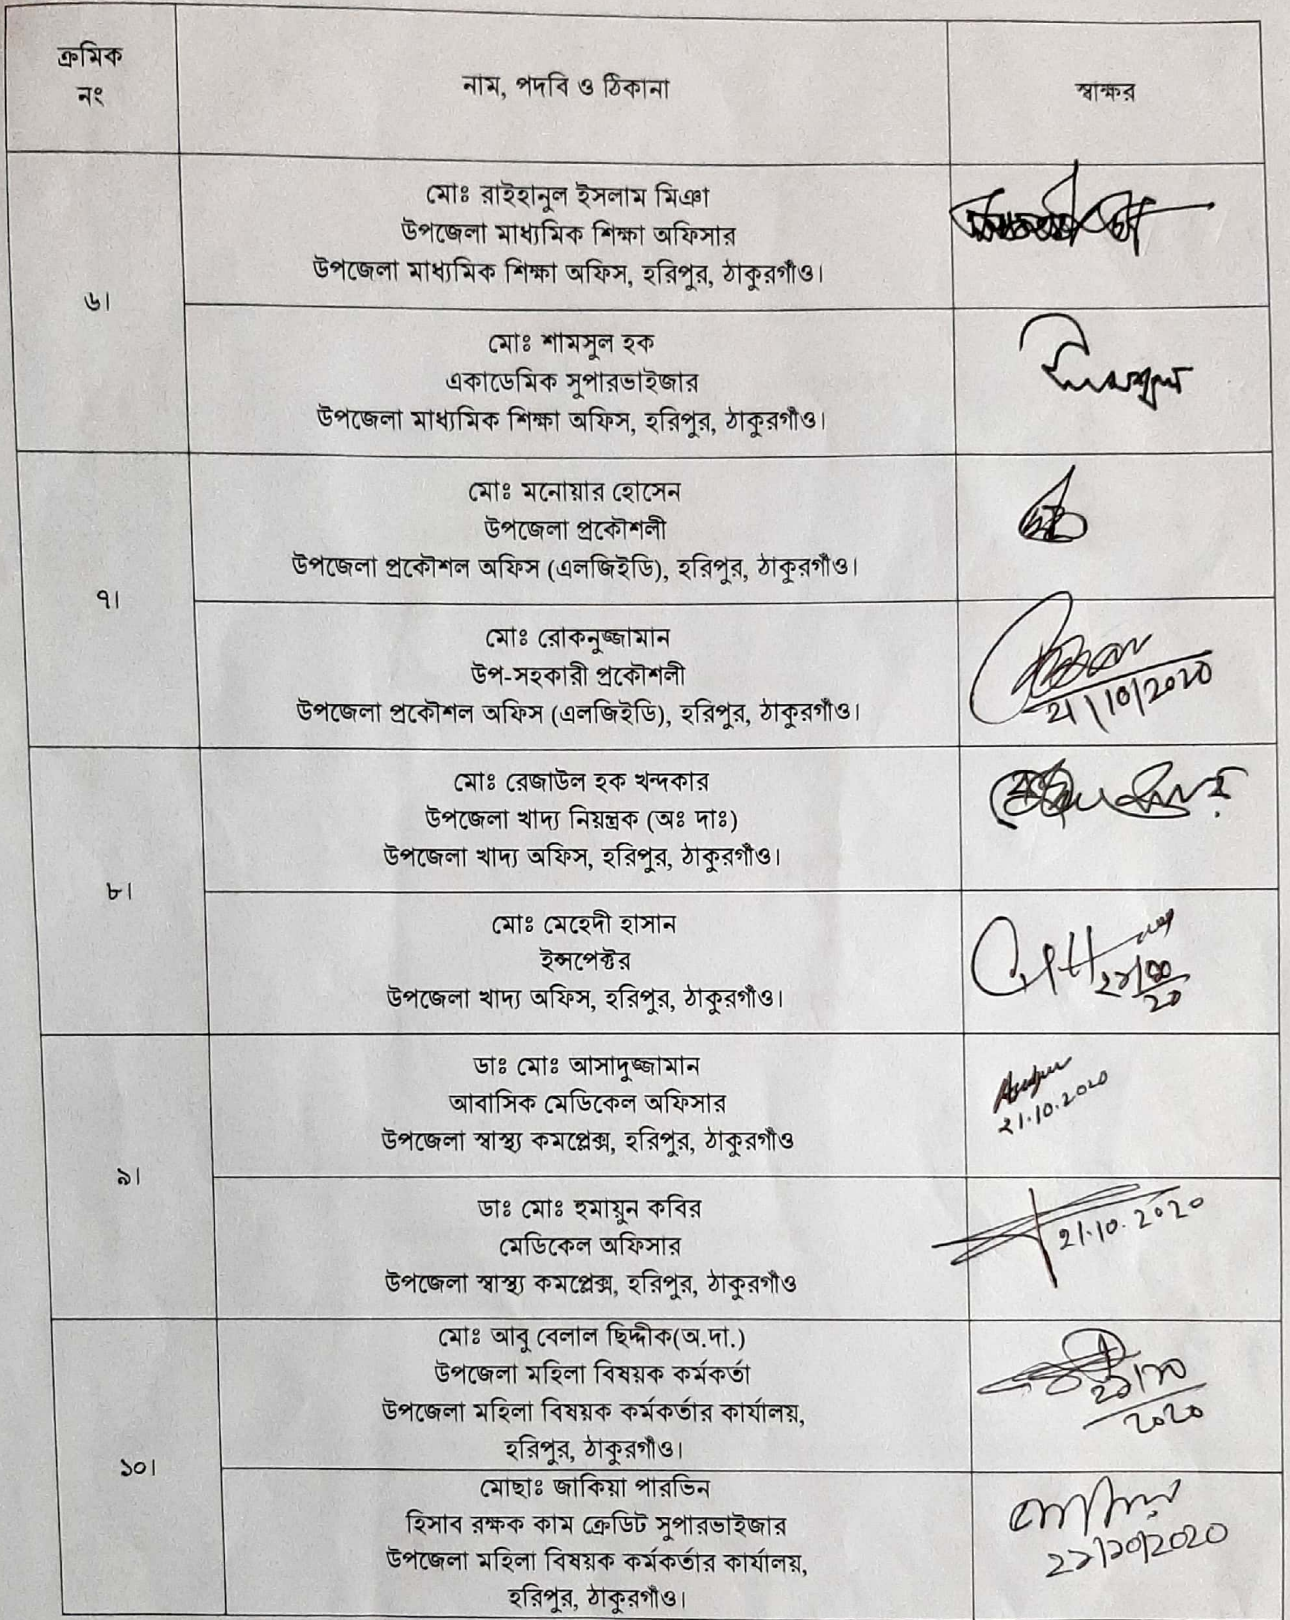 ক্রমিক
নং
নাম, পদবি ও ঠিকানা
স্বাক্ষর
৬।
মোঃ রাইহানুল ইসলাম মিঞা
উপজেলা মাধ্যমিক শিক্ষা অফিসার
উপজেলা মাধ্যমিক শিক্ষা অফিস, হরিপুর, ঠাকুরগাঁও।
মোঃ শামসুল হক
একাডেমিক সুপারভাইজার
উপজেলা মাধ্যমিক শিক্ষা অফিস, হরিপুর, ঠাকুরগাঁও।
৭।
মোঃ মনোয়ার হোসেন
উপজেলা প্রকৌশলী
উপজেলা প্রকৌশল অফিস (এলজিইডি), হরিপুর, ঠাকুরগাঁও।
মোঃ রোকনুজ্জামান
উপ-সহকারী প্রকৌশলী
উপজেলা প্রকৌশল অফিস (এলজিইডি), হরিপুর, ঠাকুরগাঁও।
21/10/2020
৮।
মোঃ রেজাউল হক খন্দকার
উপজেলা খাদ্য নিয়ন্ত্রক (অঃ দাঃ)
উপজেলা খাদ্য অফিস, হরিপুর, ঠাকুরগাঁও।
মোঃ মেহেদী হাসান
ইন্সপেক্টর
উপজেলা খাদ্য অফিস, হরিপুর, ঠাকুরগাঁও।
৯।
ডাঃ মোঃ আসাদুজ্জামান
আবাসিক মেডিকেল অফিসার
উপজেলা স্বাস্থ্য কমপ্লেক্স, হরিপুর, ঠাকুরগাঁও
21.10.2020
ডাঃ মোঃ হুমায়ুন কবির
মেডিকেল অফিসার
উপজেলা স্বাস্থ্য কমপ্লেক্স, হরিপুর, ঠাকুরগাঁও
21.10.2020
১০।
মোঃ আবু বেলাল ছিদ্দীক(অ.দা.)
উপজেলা মহিলা বিষয়ক কর্মকর্তা
উপজেলা মহিলা বিষয়ক কর্মকর্তার কার্যালয়,
হরিপুর, ঠাকুরগাঁও।
মোছাঃ জাকিয়া পারভিন
হিসাব রক্ষক কাম ক্রেডিট সুপারভাইজার
উপজেলা মহিলা বিষয়ক কর্মকর্তার কার্যালয়,
হরিপুর, ঠাকুরগাঁও।